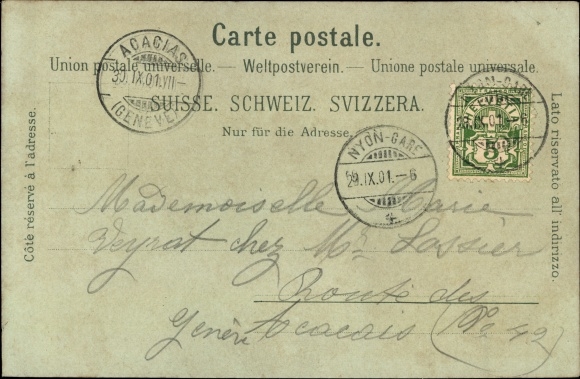 Carte postale.
Union postale universelle. — Weltpostverein. — Unione postale universale.
SUISSE. SCHWEIZ. SVIZZERA.
Nur für die Adresse.
Côte réservé à l'adresse.
Lato riservato all' indirizzo.
ACACIAS
30.IX.01.VII—
(GENEVE)
NYON-GARE
29.IX.01.—6
NYON-GARE
HELVETIA
5
Mademoiselle Marie
Veyrat chez Mr Lassier
Route des
Acacais (No 42
Genève